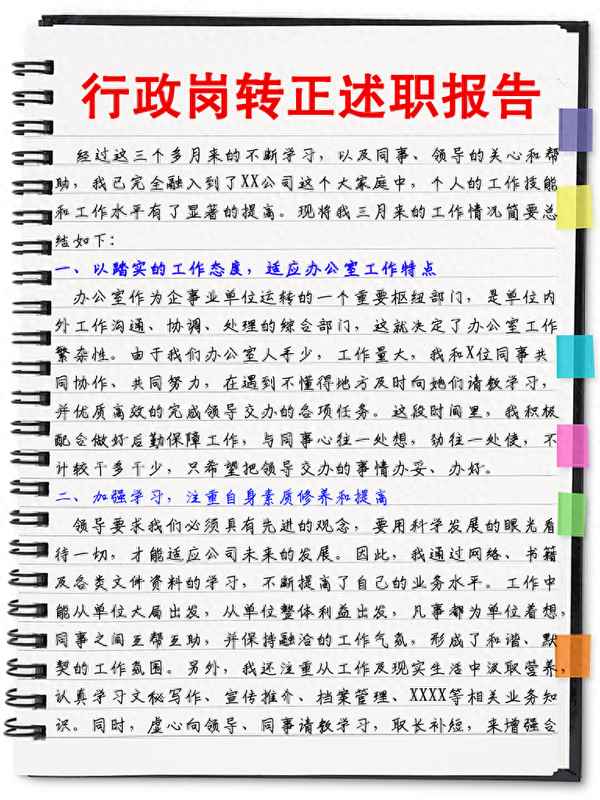 行政岗转正述职报告
经过这三个多月来的不断学习，以及同事、领导的关心和帮
助，我已完全融入到了XX公司这个大家庭中，个人的工作技能
和工作水平有了显著的提高。现将我三月来的工作情况简要总
结如下：
一、以踏实的工作态度，适应办公室工作特点
办公室作为企事业单位运转的一个重要枢纽部门，是单位内
外工作沟通、协调、处理的综合部门，这就决定了办公室工作
繁杂性。由于我们办公室人手少，工作量大，我和X位同事共
同协作、共同努力，在遇到不懂得地方及时向她们请教学习，
并优质高效的完成领导交办的各项任务。这段时间里，我积极
配合做好后勤保障工作，与同事心往一处想，劲往一处使，不
计较干多干少，只希望把领导交办的事情办妥、办好。
二、加强学习，注重自身素质修养和提高
领导要求我们必须具有先进的观念，要用科学发展的眼光看
待一切，才能适应公司未来的发展。因此，我通过网络、书籍
及各类文件资料的学习，不断提高了自己的业务水平。工作中
能从单位大局出发，从单位整体利益出发，凡事都为单位着想，
同事之间互帮互助，并保持融洽的工作气氛，形成了和谐、默
契的工作氛围。另外，我还注重从工作及现实生活中汲取营养，
认真学习文秘写作、宣传推介、档案管理、XXXX等相关业务知
识。同时，虚心向领导、同事请教学习，取长补短，来增强合